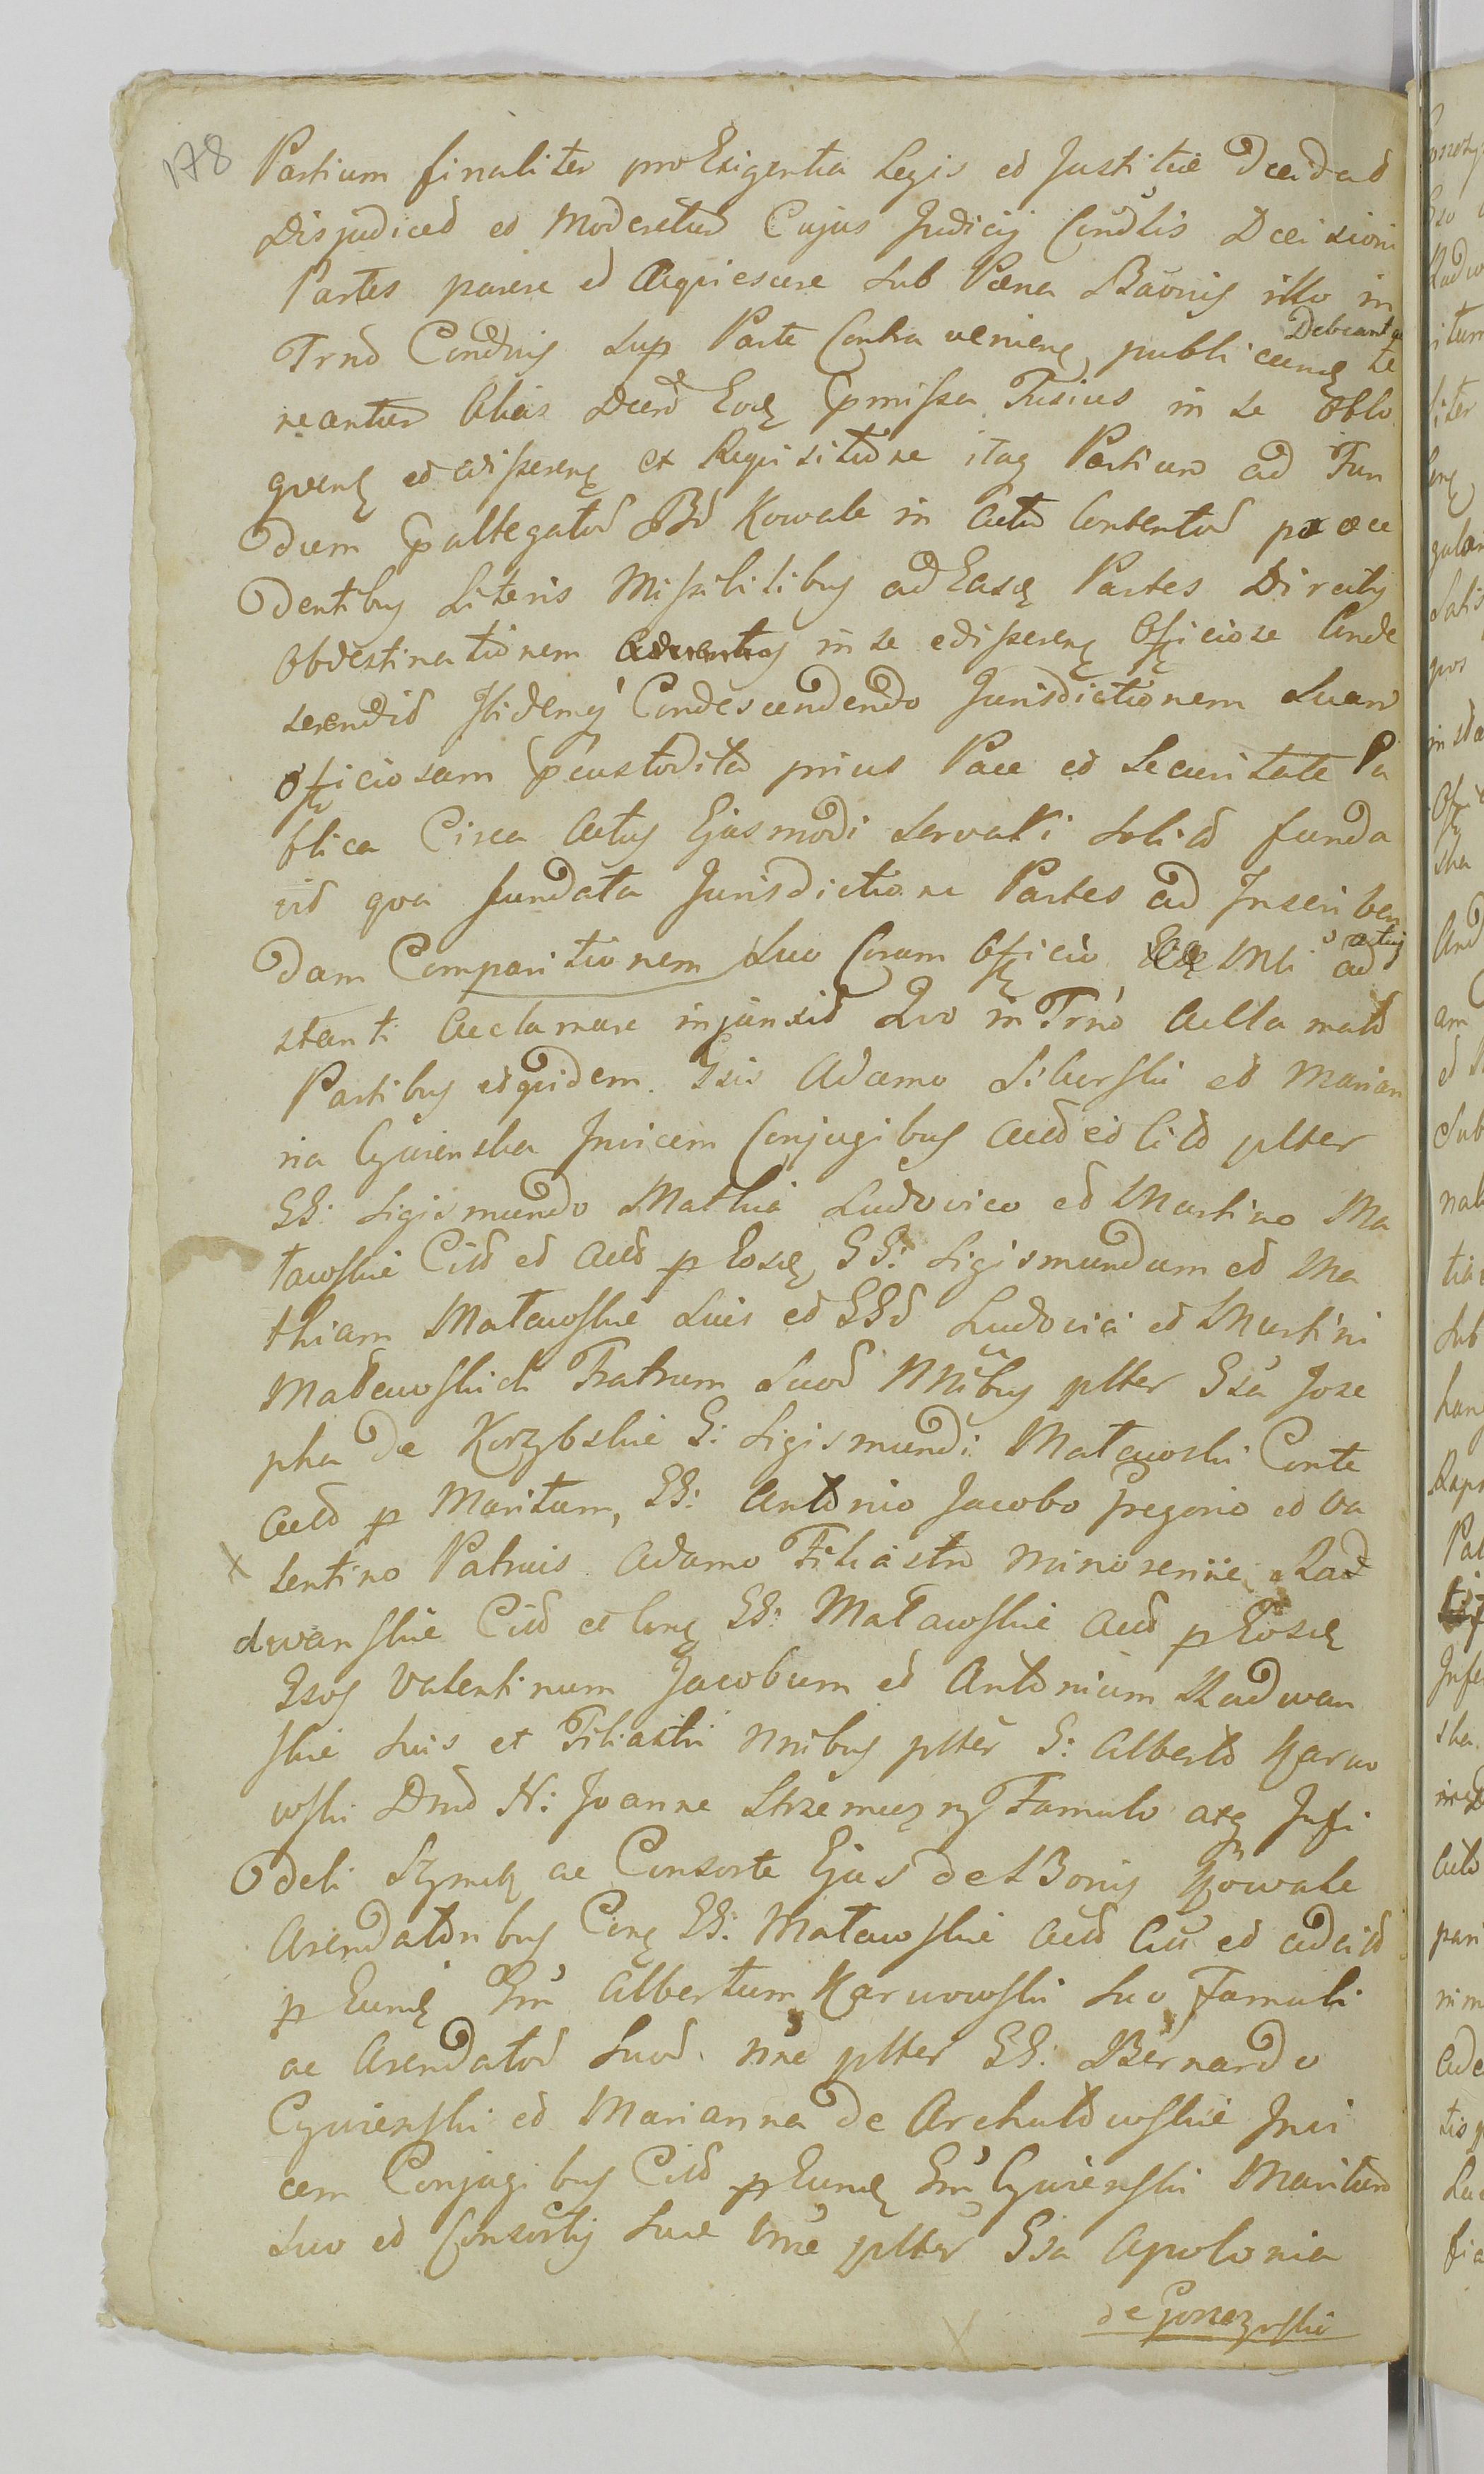 178
Partium finaliter pro Exigentia Legis et Justitiæ Decidat
Disjudicet et Moderetur Cujus Judicij Condlis Decisioni
Partes parere et Acquiescere sub Pæna Baönis illo in
Trno Condnis sup Parte Contra veniens publicand Debeant te
neantur Alias Decro Eod pmissa Fusius in se oblo
quens et disserens ex Requisitione itaq Partium ad Fun
dum pallegator Br Kowale in Actu Contentor præce
dentibus Literis Missilibus ad Easd Partes Directis
Obdestinationem Adventus in se edisserens Officiose Conde
scendit Ibidemq Condescendendo Jurisdictionem Suam
Officiosam pcustodita prius Pace et Securitate Pu
blica Circa Actus Ejusmodi servari solita funda
vit qva fundata Jurisdictione Partes ad Inscriben
dam Comparitionem Suo Coram Officio Mli actus ad
stanti Acclamare injunxit Quo in Trno Acclamato
Partibus et quidem Gsis Adamo Siberski et Marian
na Cywinska Invicem Conjugibus Act et Citt ptter
GG: Sigismundo Mathia Ludovico et Martino Ma
tawskie Citt et Act p Eosd GG: Sigismundum et Ma
thiam Matawskie Suis et GGr Ludovici et Martini
Matawskich Fratrum Suor Nnibus ptter Gsa Jose
pha de Korzybskie G: Sigismundi Matawski Conte
Act p Maritum, GG: Antonio Jacobo Gregorio et Va
lentino Patruis Adamo Filiastro minorenne Rad
dwanskie Citt et Cons GG: Matawskie Act p Eosd
Gsos Valentinum Jacobum et Antonium Radwan
skie Suis et Filiastri Nnibus ptter G: Alberto Karwo
wski Dno N: Joanne Strzemęzny Famulo atq Infi
deli Szmul ac Consorte Ejus de Bonis Kowale
Arendatoribus Cons GG: Matawskie Act Citt et adcitt
p Eund Gm Albertum Karwowski Suo Famuli
ac Arendator Suor nne ptter GG: Bernardo
Cywinski et Marianna de Archutowskie Invi
cem Conjugibus Citt p Eund Gm Cywinski Maritum
Suo et Consortis Suæ Nne ptter Gsa Apolonia
de Gorczyskie